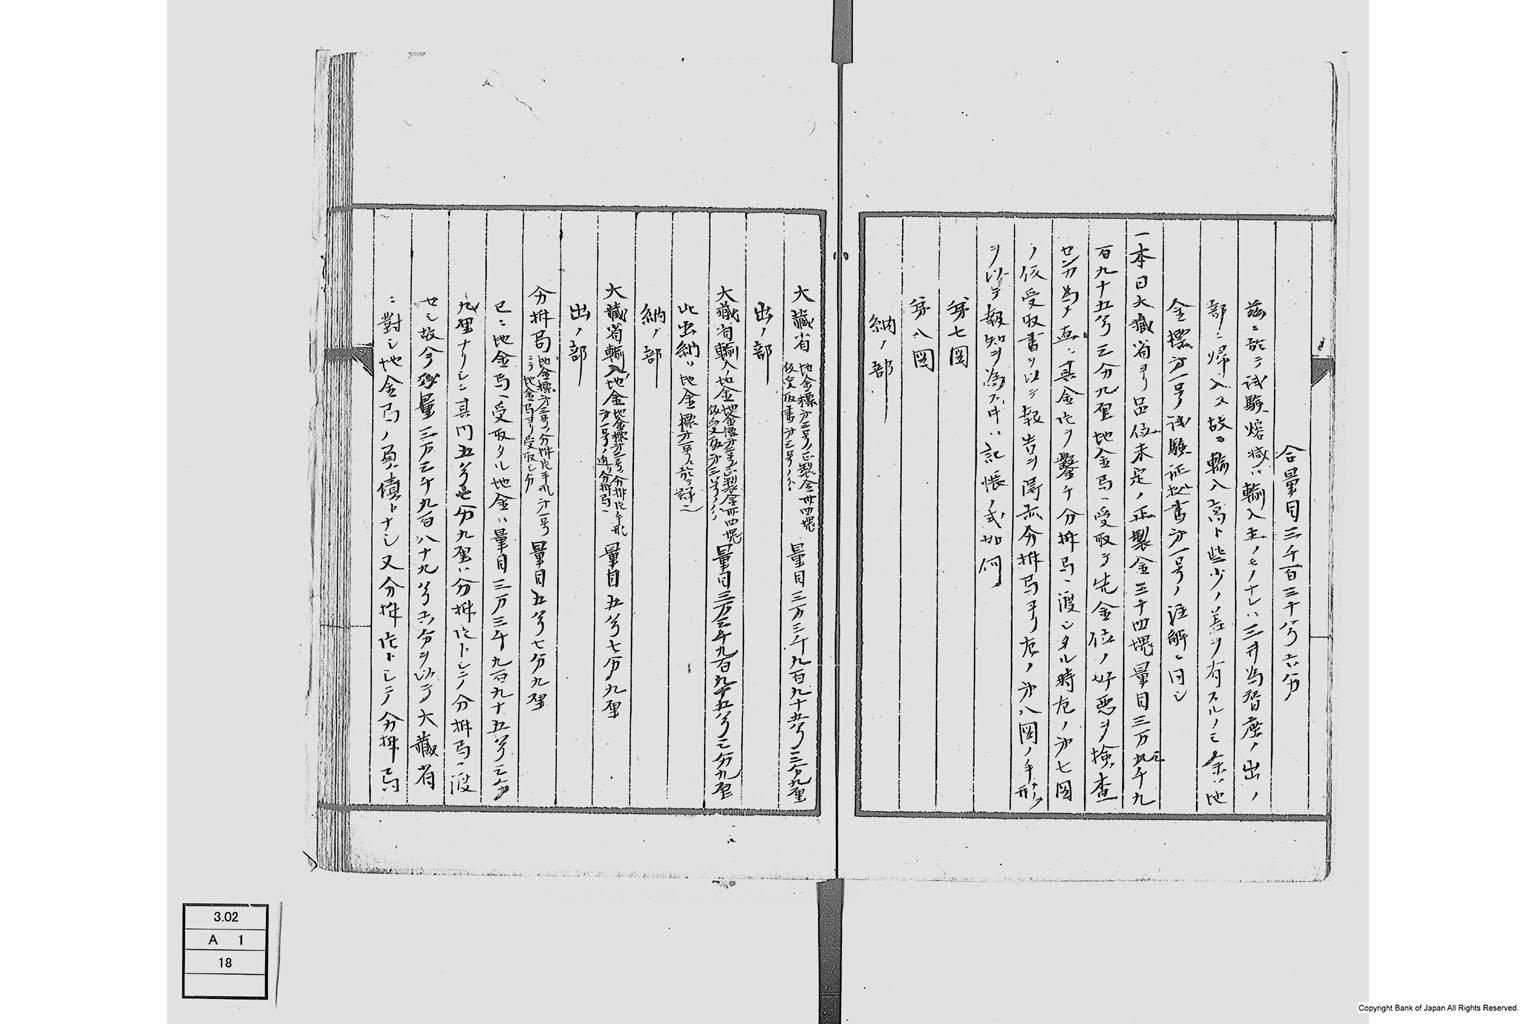 合量目三千百三十八ゟ六分
茲ニ於テ試験熔減ハ輸入主ノモノナレハ三井為替座ノ出ノ
部ニ帰入ス故ニ輸入高ト些少ノ差ヲ有スルノミ余ハ地
金標第一号ノ試験証拠書第一号ノ注解ニ同シ
一本日大蔵省ヨリ品位未定ノ正製金三十四塊量目三万三千九
百九十五ゟ三分九厘地金局ヘ受取リ先金位ノ好悪ヲ検査
セン為メ直ニ其金片ヲ鑿ケ分析局ヘ渡シタル時左ノ第七図
ノ仮受取書ヲ以テ報告ヲ得亦分析局ヨリ左ノ第八図ノ手形
ヲ以テ報知ヲ為ス中ハ記帳ノ式如何
第七図
第八図
納ノ部
大蔵省 地金標第二号ノ正製金卅四塊 仮受取書第二号 量目三万三千九百九十五ゟ三分九厘
出ノ部
大蔵省輸入ノ地金 地金標第二号ノ正製金卅四塊 仮受取第二号 量目三万三千九百九十五ゟ三分九厘
此出納ハ地金標第一号ニ於テ詳ニ
納ノ部
大蔵省輸入地金 地金標第二号分析片手形 第一号ノ 分析局ヘ 量目五ゟ七分九厘
出ノ部
分析局 地金標第二号ノ分析片手形第一号 ニテ地金局ヨリ受取シ分 量目五ゟ七分九厘
已ニ地金局ヘ受取タル地金ハ量目三万三千九百九十五ゟ三分
九厘ナリシニ其内五ゟ七分九厘ハ分析片トシテ分析局ヘ渡
セシ故今残量三万三千九百八十九ゟ六分ヲ以テ大蔵省
ニ対シ地金局ノ負債トナシ又分析片トシテ分析局
3.02
A 1
18
Copyright Bank of Japan All Rights Reserved.